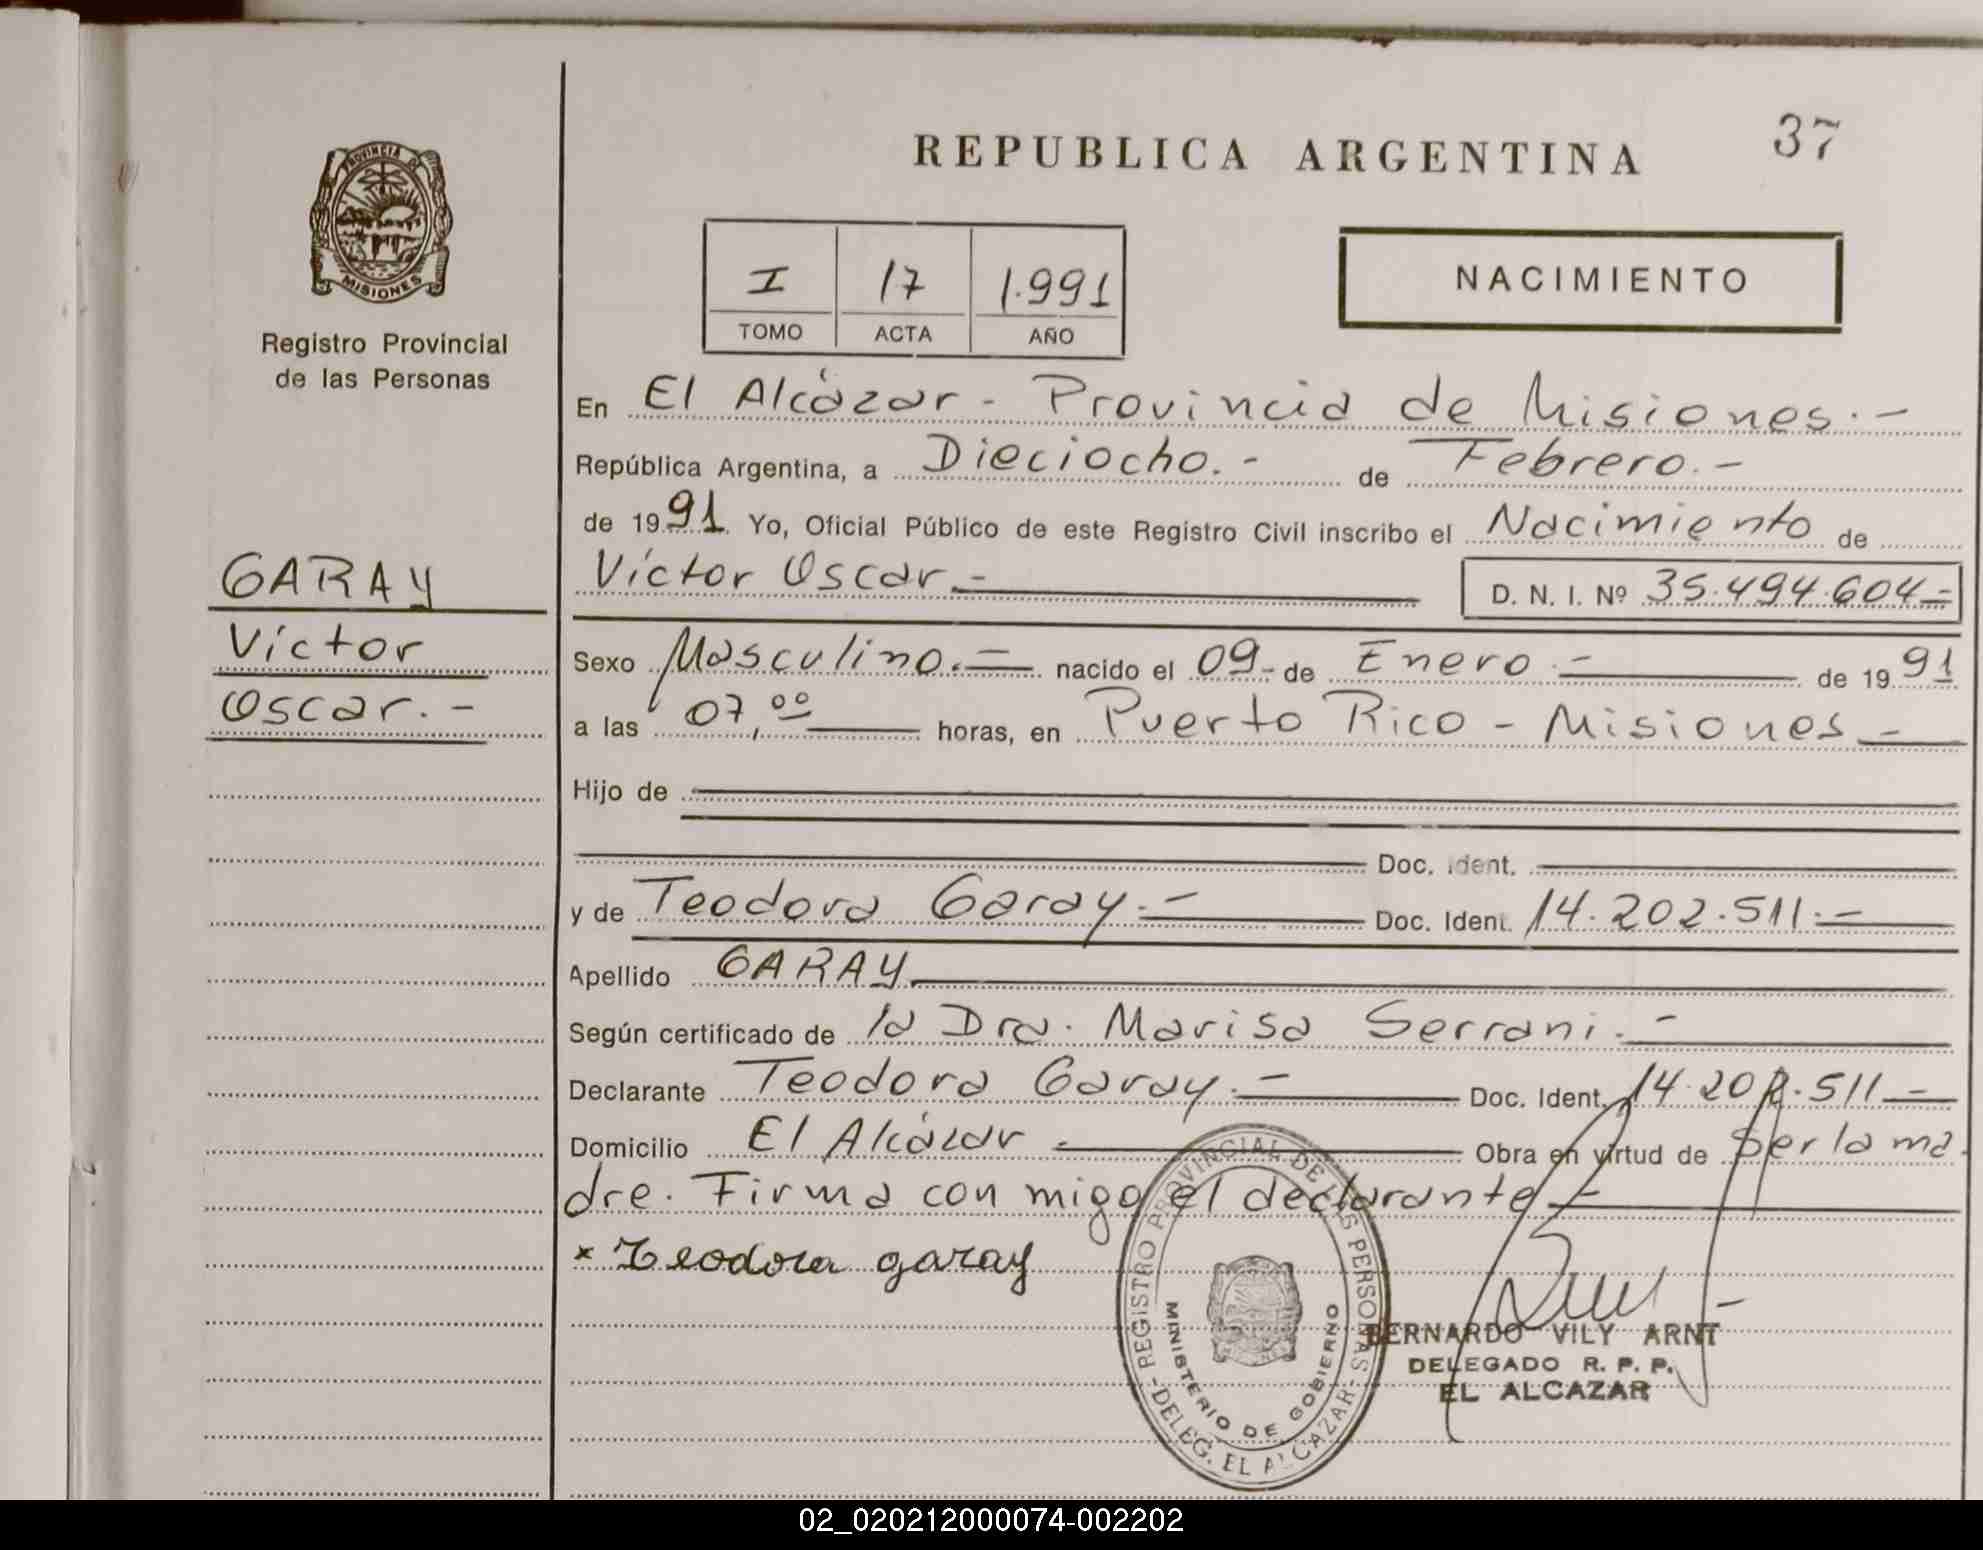 PROVINCIA DE
MISIONES
Registro Provincial
de las Personas
GARAY
Víctor
Oscar.-
REPUBLICA ARGENTINA
37
I 17 1.991
TOMO ACTA AÑO
NACIMIENTO
En El Alcázar - Provincia de Misiones.-
República Argentina, a Dieciocho.- de Febrero.-
de 1991. Yo, Oficial Público de este Registro Civil inscribo el Nacimiento de
Víctor Oscar.- D. N. I. Nº 35.494.604-
Sexo Masculino.- nacido el 09- de Enero.- de 1991
a las 07,00 horas, en Puerto Rico - Misiones-
Hijo de
Doc. Ident.
y de Teodora Garay.- Doc. Ident. 14.202.511.-
Apellido GARAY
Según certificado de la Dra. Marisa Serrani.-
Declarante Teodora Garay.- Doc. Ident. 14.202.511-
Domicilio El Alcázar Obra en virtud de Ser la ma
dre. Firma con migo el declarante-
x Teodora garay
REGISTRO PROVINCIAL DE LAS PERSONAS
MINISTERIO DE GOBIERNO
-DELEG. EL ALCAZAR-
BERNARDO VILY ARNT
DELEGADO R. P. P.
EL ALCAZAR
02_020212000074-002202